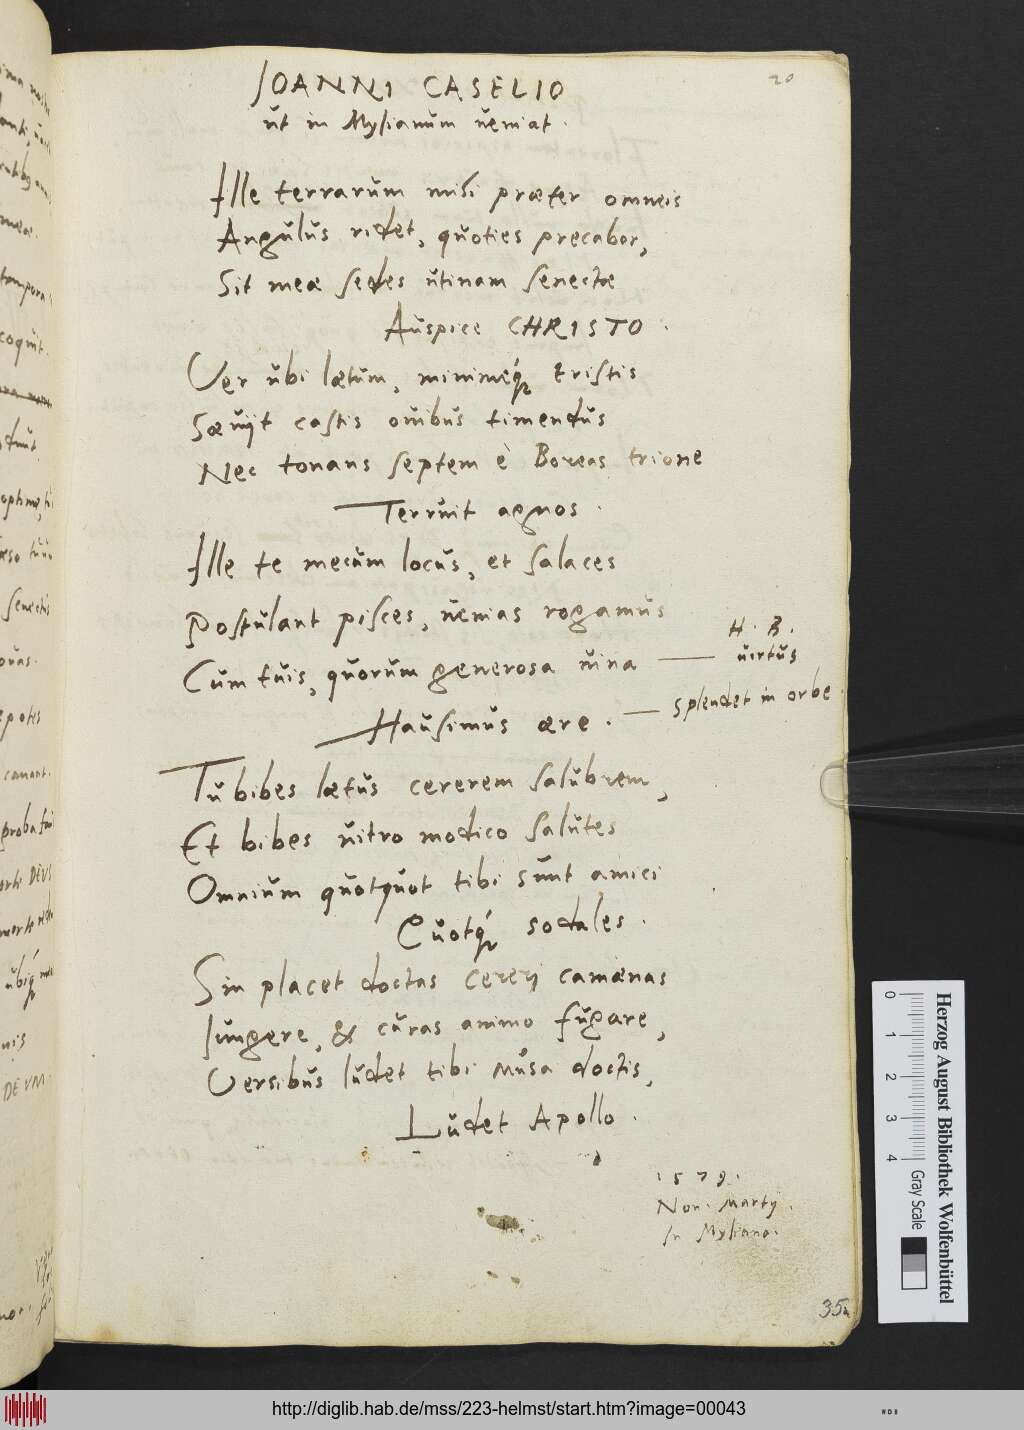 20
IOANNI CASELIO
ut in Mylianum ueniat.
Ille terrarum mihi præter omneis
Angulus ridet, quoties precabor,
Sit meæ sedes utinam senectæ
Auspice CHRISTO.
Ver ubi lætum, minimeq́ tristis
Sæuijt castis ouibus timendus
Nec tonans septem è Boreas trione
Terruit agnos.
Ille te mecum locus, et salaces
Postulant pisces, uenias rogamus
Cum tuis, quorum generosa uina — H. B. uirtus
Hausimus ære. — splendet in orbe.
Tu bibes lætus cererem salubrem,
Et bibes uitro modico salutes
Omnium quotquot tibi sunt amici
Quotq́ sodales.
Sin placet doctas Cereri camœnas
Iungere, & curas animo fugare,
Versibus ludet tibi Musa doctis,
Ludet Apollo.
1579.
Non. Martij.
In Myliano.
35a
Herzog August Bibliothek Wolfenbüttel
0 1 2 3 4 Gray Scale
http://diglib.hab.de/mss/223-helmst/start.htm?image=00043